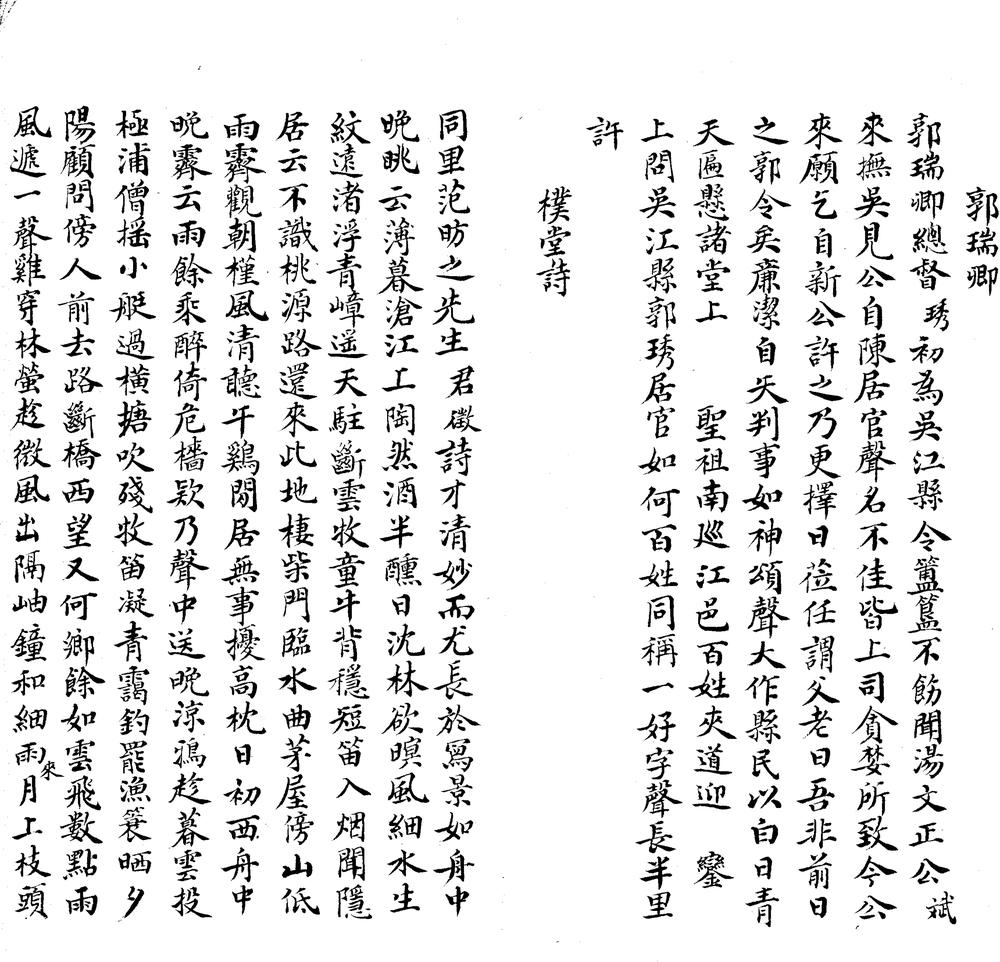 郭瑞卿
郭瑞卿總督琇初爲吳江縣令簠簋不飭聞湯文正公斌
來撫吳見公自陳居官聲名不佳皆上司貪婪所致今公
來願乞自新公許之乃更擇日莅任謂父老曰吾非前日
之郭令矣廉潔自矢判事如神頌聲大作縣民以白日青
天匾懸諸堂上 聖祖南巡江邑百姓夾道迎 鑾
上問吳江縣郭琇居官如何百姓同稱一好字聲長半里
許
樸堂詩
同里范昉之先生君徵詩才清妙而尤長於寫景如舟中
晚眺云薄暮滄江上陶然酒半醺日沈林欲暝風細水生
紋遠渚浮青嶂遥天駐斷雲牧童牛背穩短笛入烟聞隱
居云不識桃源路還來此地棲柴門臨水曲茅屋傍山低
雨霽觀朝槿風清聽午鷄閒居無事擾高枕日初西舟中
晚霽云雨餘乘醉倚危檣欵乃聲中送晚涼鴉趁暮雲投
極浦僧摇小艇過橫塘吹殘牧笛凝青靄釣罷漁蓑晒夕
陽顧問傍人前去路斷橋西望又何鄉餘如雲飛數點雨
風遞一聲雞穿林螢趁微風出隔岫鐘和細雨來月上枝頭